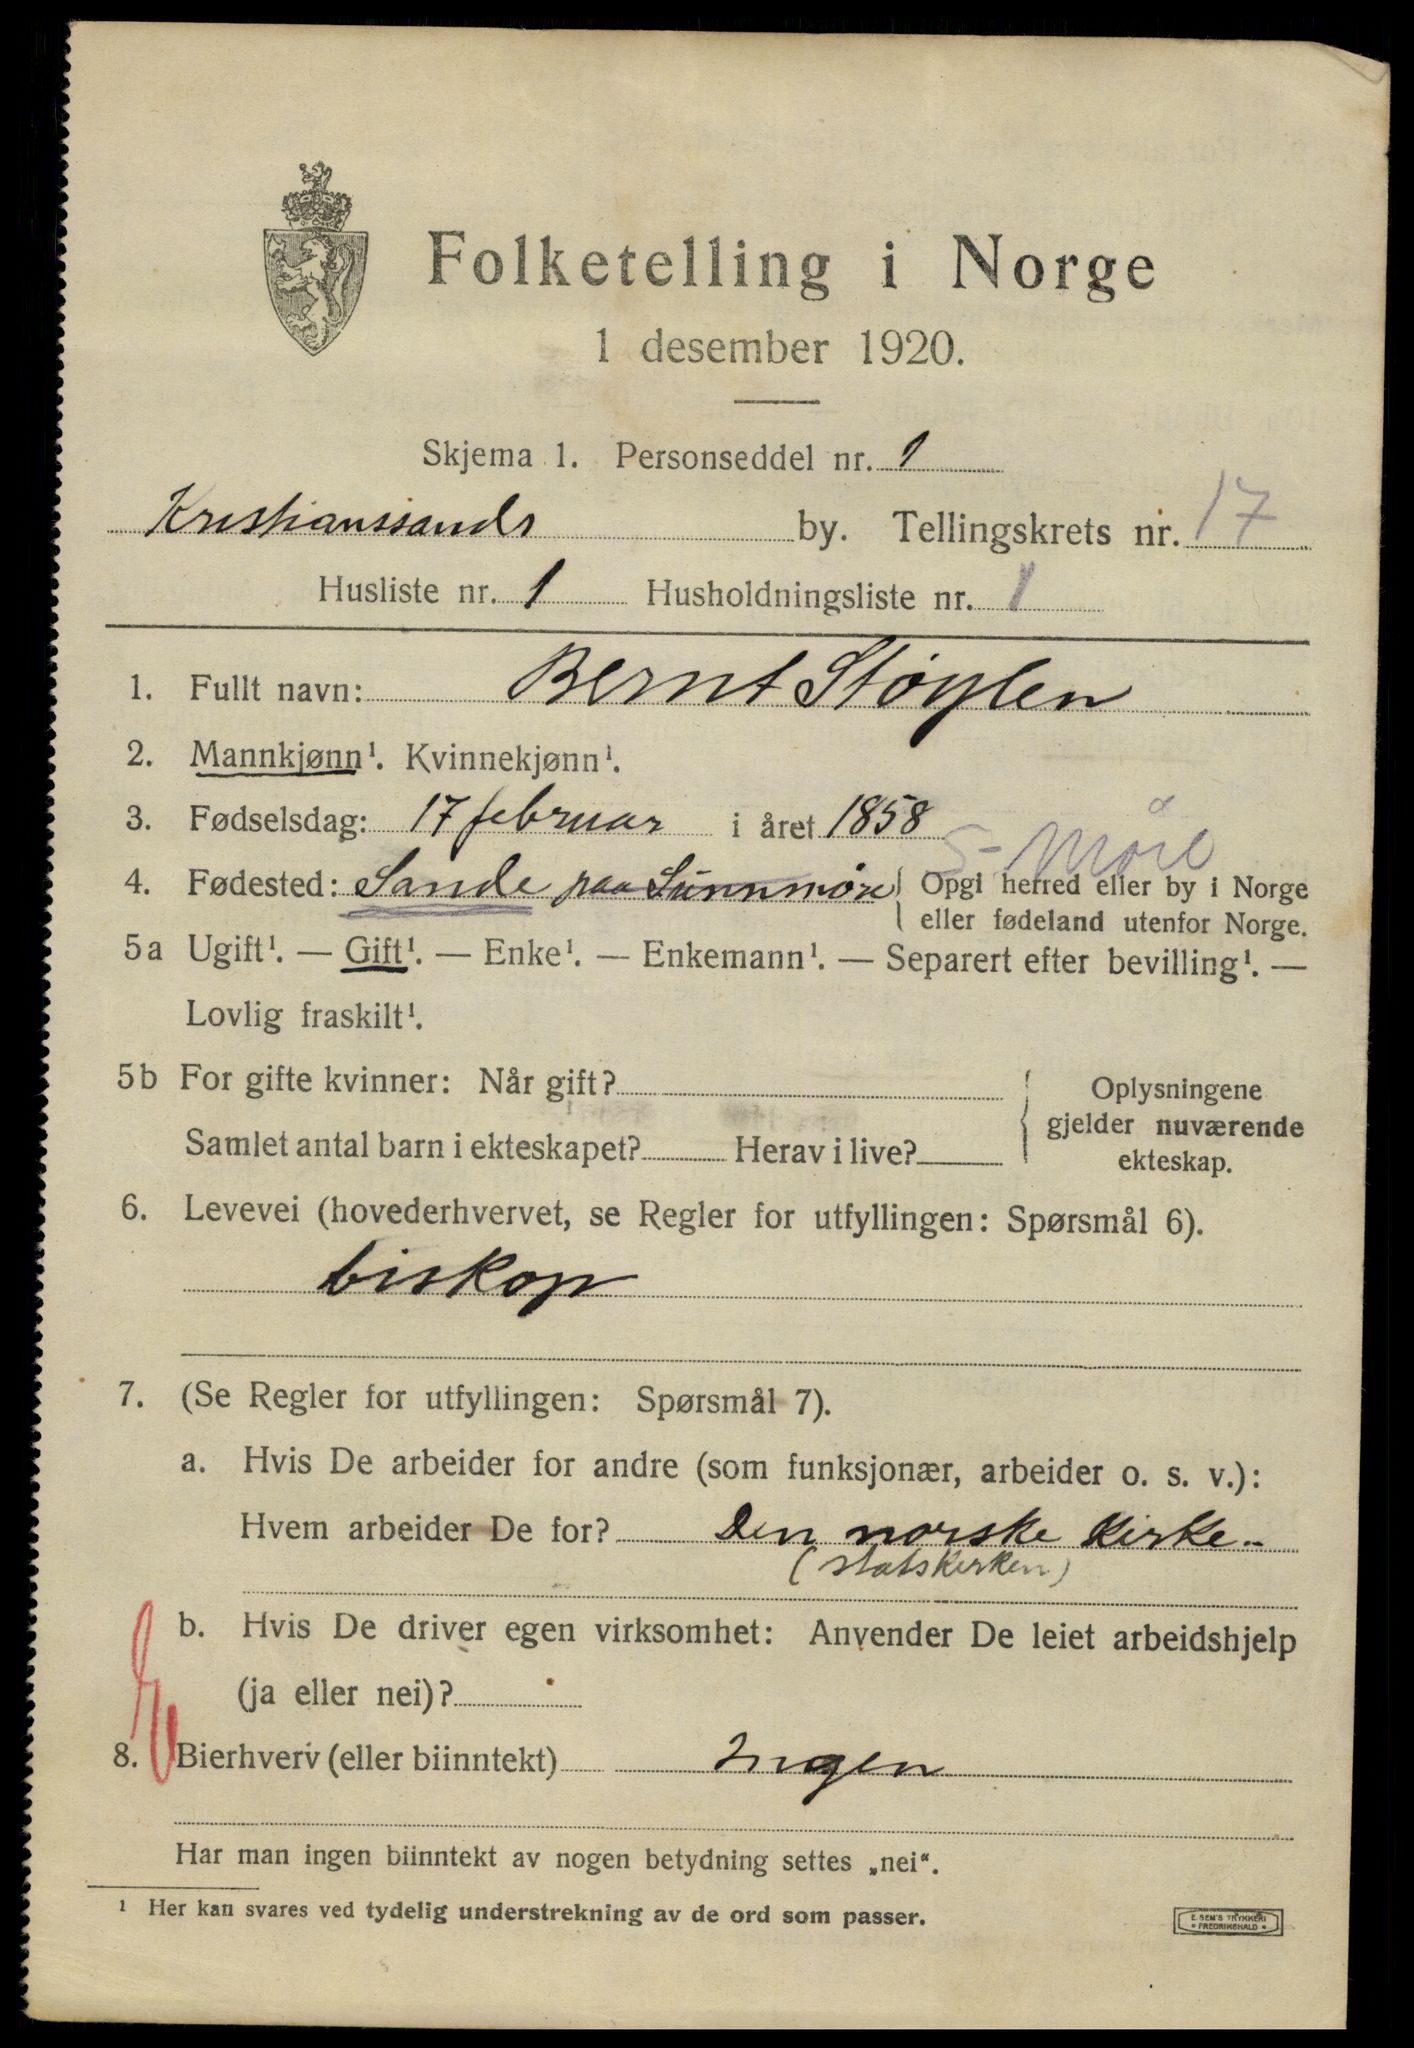 Folketelling i Norge
1 desember 1920.
Skjema 1. Personseddel nr. 1
Kristianssands by. Tellingskrets nr. 17
Husliste nr. 1 Husholdningsliste nr. 1
1. Fullt navn: Bernt Støylen
2. Mannkjønn¹. Kvinnekjønn¹.
3. Fødselsdag: 17 februar i året 1858
S- Møre
4. Fødested: Sande paa Sunnmøre { Opgi herred eller by i Norge
eller fødeland utenfor Norge.
5a Ugift¹. — Gift¹. — Enke¹. — Enkemann¹. — Separert efter bevilling¹. —
Lovlig fraskilt¹.
5b For gifte kvinner: Når gift?
Samlet antal barn i ekteskapet? Herav i live?
Oplysningene
gjelder nuværende
ekteskap.
6. Levevei (hovederhvervet, se Regler for utfyllingen: Spørsmål 6).
biskop
7. (Se Regler for utfyllingen: Spørsmål 7).
a. Hvis De arbeider for andre (som funksjonær, arbeider o. s. v.):
Hvem arbeider De for? Den norske kirke..
(statskirken)
b. Hvis De driver egen virksomhet: Anvender De leiet arbeidshjelp
(ja eller nei)?
8. Bierhverv (eller biinntekt) Ingen
Har man ingen biinntekt av nogen betydning settes „nei“.
¹ Her kan svares ved tydelig understrekning av de ord som passer.
E. SEM'S TRYKKERI
• FREDRIKSHALD •